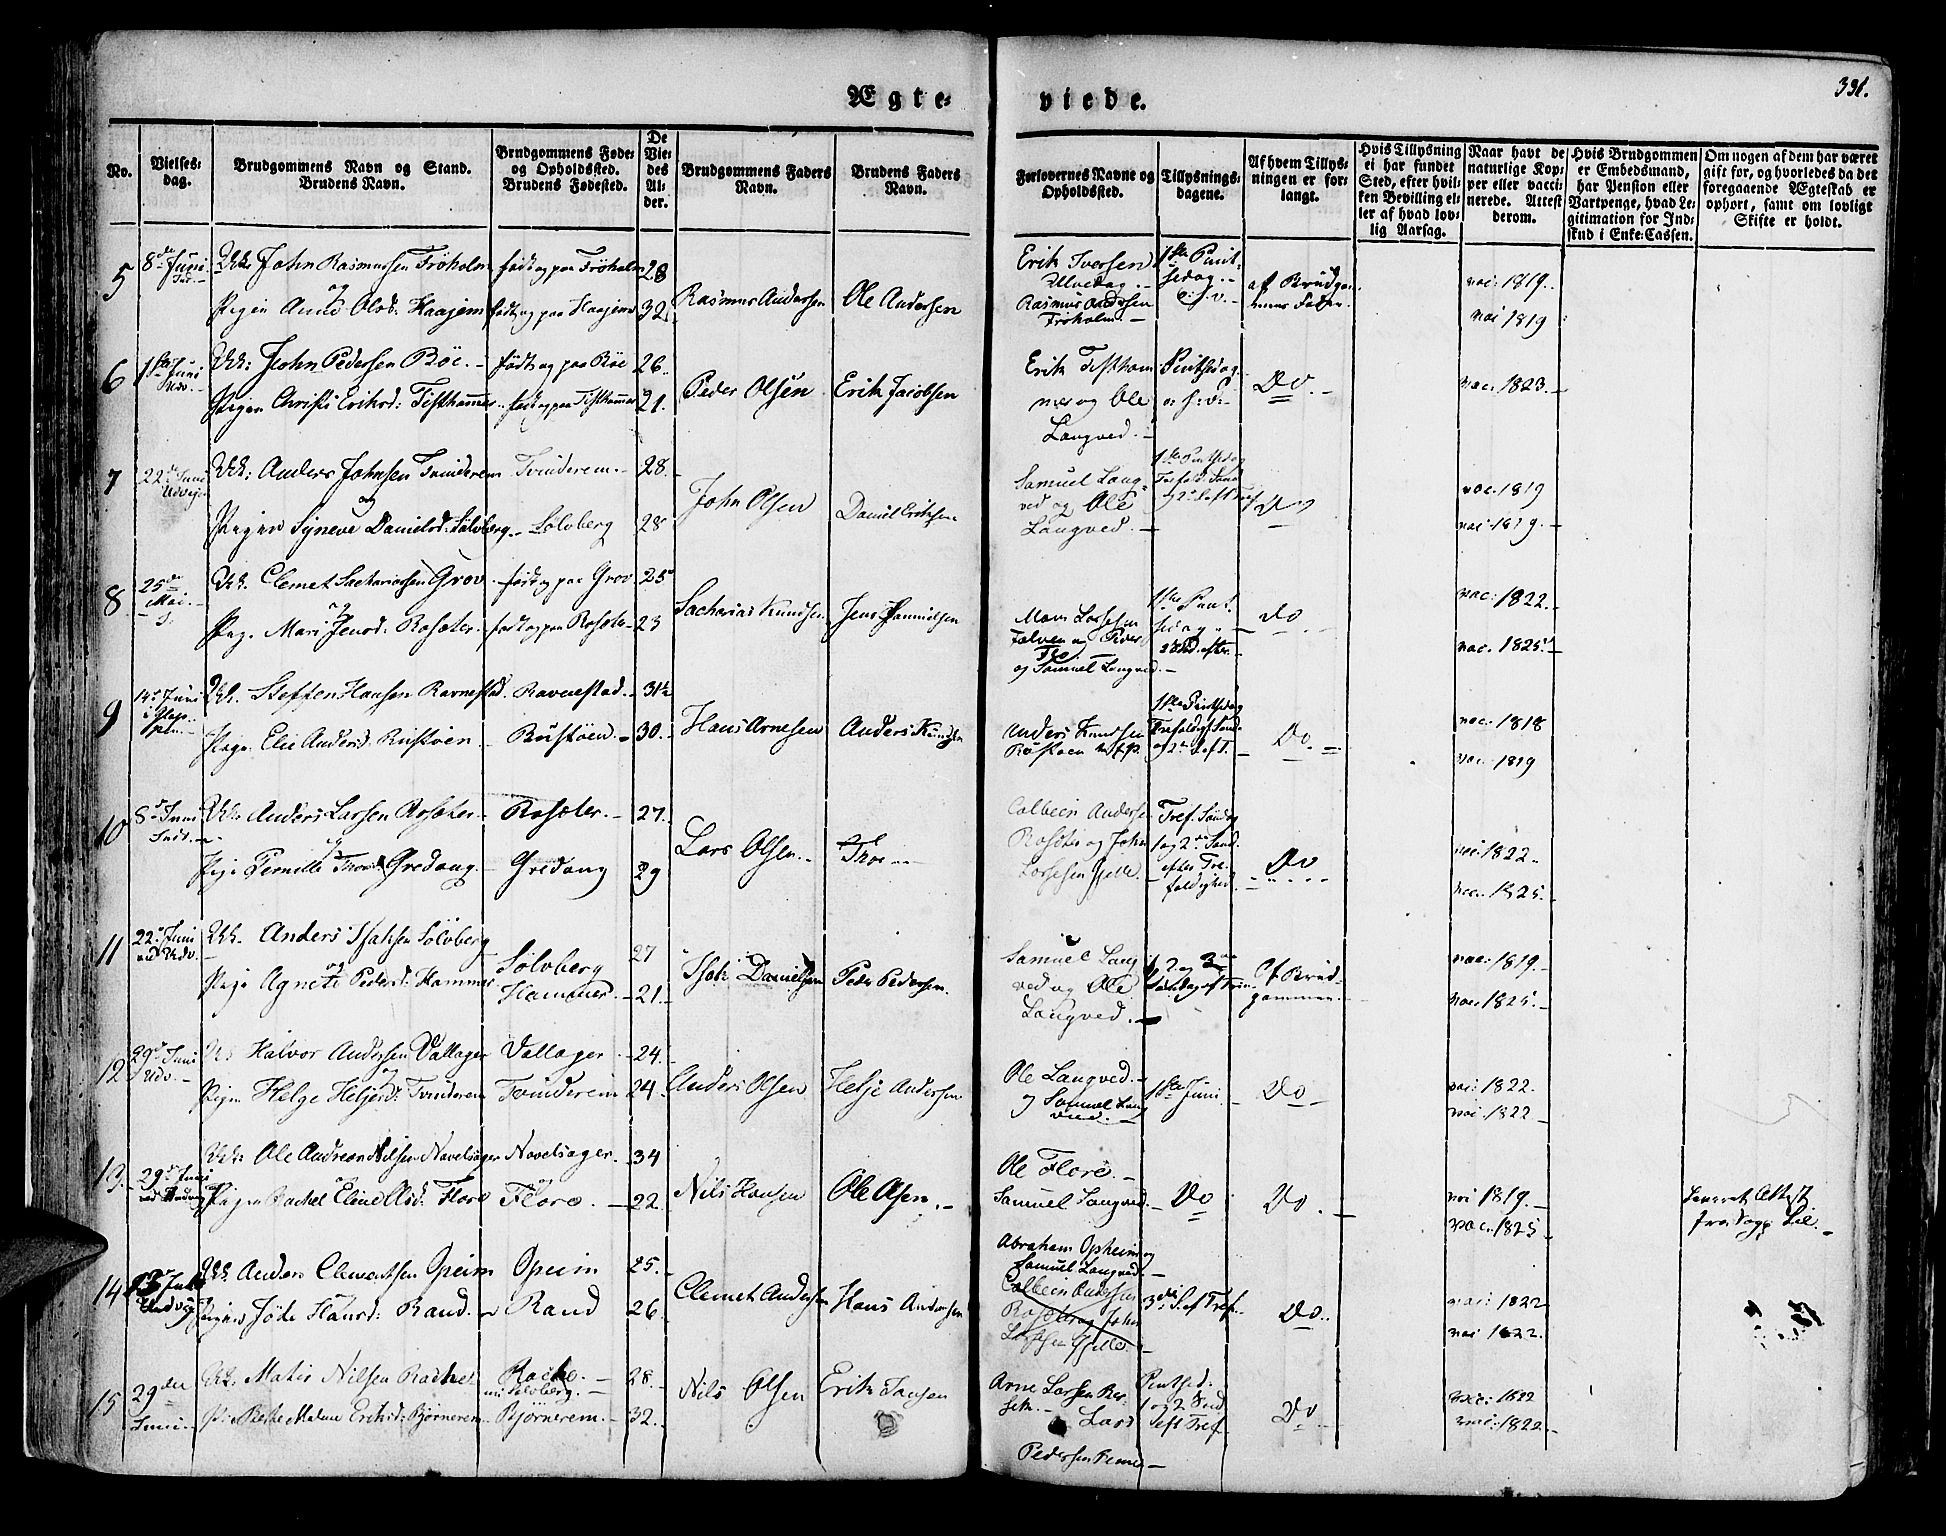 Ægte-
viede.
331.
No.
Vielses-
dag.
Brudgommens Navn og Stand.
Brudens Navn.
Brudgommens Føde-
og Opholdssted.
Brudens Fødested.
De
Vie-
des
Al-
der.
Brudgommens Faders
Navn.
Brudens Faders
Navn.
Forlovernes Navne og
Opholdssted.
Tillysnings-
dagene.
Af hvem Tillys-
ningen er for-
langt.
Hvis Tillysning
ei har fundet
Sted, efter hvil-
ken Bevilling el-
ler af hvad lov-
lig Aarsag.
Naar havt de
naturlige Kop-
per eller vacci-
nerede. Attest
derom.
Hvis Brudgommen
er Embedsmand,
har Pension eller
Vartpenge, hvad Le-
gitimation for Ind-
skud i Enke-Cassen.
Om nogen af dem har været
gift før, og hvorledes da det
foregaaende Ægteskab er
ophørt, samt om lovligt
Skifte er holdt.
5
8de Juni
Ind.
Ukk: John Rasmussen Frøholm
og
Pigen Anne Olsd: Haajem
født og paa Frøholm
født og paa Haajem
28
32
Rasmus Andersen
Ole Andersen
Erik Iversen
Ulvedag
Rasmus Andersen
Frøholm.
1ste Pint-
sedag
af Brudgom-
mens Fader
vac: 1819.
vac 1819
6
1ste Juni
Udv.
Ukk: John Pedersen Bøe
Pigen Christi Eriksd: Tisthammer
født og paa Bøe
født og paa Tisthammer
26
21.
Peder Olsen
Erik Jacobsen
Erik Tistham
mer og Ole
Langved.
Pintsedag
Do
vac. 1823.
7
22de Juni
Udvig
Ukk: Anders Johnsen Tvinderem
og
Pigen Synneve Danielsd: Solvberg
Tvinderem
Solvberg
28.
28
John Olsen
Daniel Eriksen
Samuel Lang-
ved og Ole
Langved.
1ste Pintsedag
Trefold. Sønd
og 2den Eft Tref
Do
vac. 1819
vac. 1819.
8
25de
Mai.
Ukk. Clemet Sachariassen Grov
og
Pig. Mari Jensd: Rosæter
født og paa Grov
født og paa Rosæter
25
23
Sacharias Knudsen
Jens Samuelsen
Mons Lassesen
Tolven og Peder
og Samuel Langved.
1ste Pint.
sedag
Do
vac: 1822.
vac. 1825.
9
14de Juni
Ukk. Steffen Hansen Ravnestad
Pige. Elie Andersd. Rustøen
Ravnestad.
Rustøen.
31½
30.
Hans Arnesen
Anders Knudsen
Anders Knudsen
Rustøen
1ste Pintsedag
Trefoldigh Sønd
og 2den Eft T.
Do.
vac: 1818
vac. 1819
10
8de Juni
Indv.
Ukk: Anders Larsen Rosæter
og
Pige Pernille Thored. Gredang.
Rosæter.
Gredang
27.
29
Lars Olsen
Thor
Colbein Andersen
Rosæter og John
Lassesen Gjelle.
Tref. Søndag
1 og 2den Sønd.
efter Tre-
foldighed.
Do
vac: 1822.
vac. 1825.
11
22de Juni
ved Udv.
Ukk. Anders Isaksen Sølvberg
og
Pige Agnete Pedersd. Hammer
Sølvberg
Hammer
27
21.
Isak Danielsen
Peder Pedersen.
Samuel Lang
ved og Ole
Langved.
Af Brud
gommen.
vac: 1819.
vac. 1825.
12
29de Juni
Udv.
Uk Halvor Andersen Vallager
og
Pigen Helge Heljesd: Tvinderem
Vallager
Tvinderem
24.
24.
Anders Olsen
Helje Andersen
Ole Langved.
og Samuel Lang
ved.
1ste Juni
Do
vac: 1822.
vac. 1822
13.
29de Juni
Ukk: Ole Andreas Nilsen Navelsager
Pigen Rachel Eline Olsd: Flore
Navelsager.
Flore
34
22.
Nils Hansen
Ole Olsen
Ole Flore.
Samuel Langved.
Do
Do
vac 1819.
vac. 1825
Leveret Attest
14
13de Juli
Udvig
Ukk. Anders Clemetsen Opeim
Pigen Jøde Hansd: Rand.
Opeim
Rand
25.
26
Clemet Andersen
Hans Andersen
Abraham Opheim og
Samuel Langved.
Colbein Andersen
Rosæter og John
Lassesen Gjelle.
3die S. eft Tref.
Do.
vac: 1822
vac 1822.
15
29der
Juni
Uk. Matis Nilsen Racke
Pi: Berthe Malene Eriksd: Bjørnerem
Racke.
Solvberg.
Bjørnerem.
28.
32.
Nils Olsen
Erik Jansen
Arne Larsen Re-
Lars
Pedersen
Pintsed:
1 og 2 Sønd
eft Tref
Do.
vac: 1822
vac: 1822.